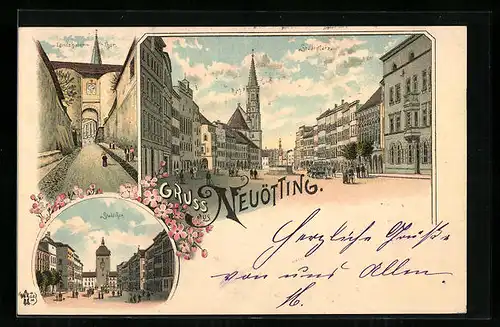 Landshuterthor.
Stadtplatz.
GRUSS
aus
NEUÖTTING.
Herzliche Grüße
von uns Allen.